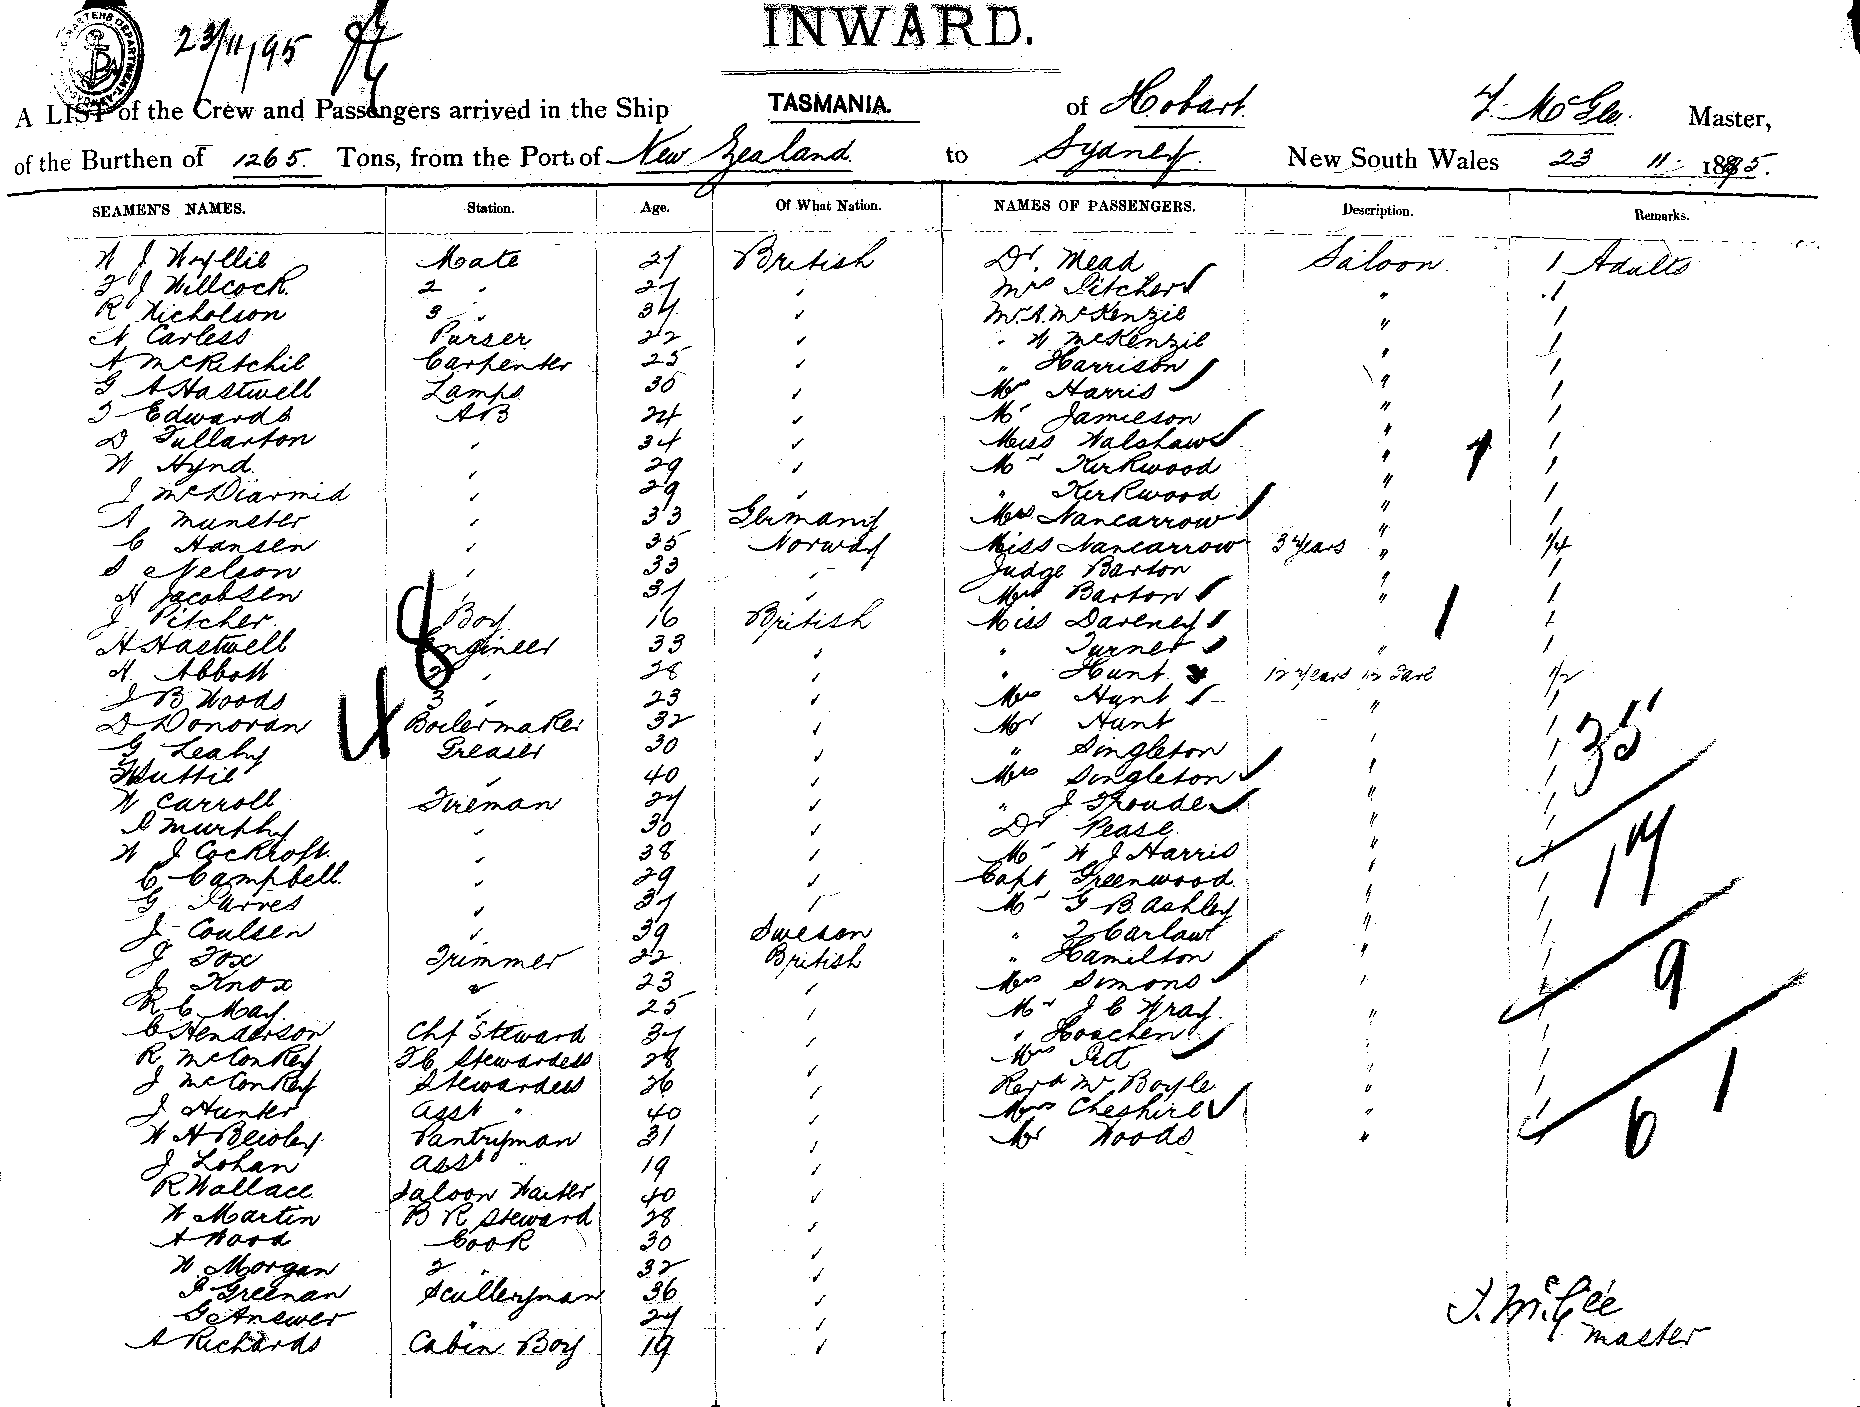 23/11/95
INWARD.
A LIST of the Crew and Passengers arrived in the Ship TASMANIA. of Hobart. Master,
of the Burthen of 1265. Tons, from the Port of New Zealand. to Sydney. New South Wales 23 11 1895.
SEAMEN'S NAMES. Station. Age. Of What Nation. NAMES OF PASSENGERS. Description. Remarks.
W J Wyllie Mate 27 British Dr. Mead Saloon 1 Adults
J Willcock 2 " 27 " Mrs Pitcher " 1
R Nicholson 3 " 34 " Mr. A. McKenzie " 1
N Carless Purser 22 " " W McKenzie " 1
A McRitchie Carpenter 25 " " Harrison " 1
G A Hastwell Lamps 35 " Harris " 1
Edwards AB 24 " Mr Jamieson " 1
D Fullarton " 34 " Miss Walshaw " 1
W Hynd " 29 " Mr Kirkwood " 1
J McDiarmid " 29 " " Kirkwood " 1
A Munster " 33 Germany Mrs Nancarrow " 1
C Hansen " 35 Norway Miss Nancarrow 3 years " 1/4
S Nelson " 33 " Judge Barton " 1
A Jacobsen " 37 " Mrs Barton " 1
J Pitcher Boy 16 British Miss Dareney 1
H Hastwell Engineer 33 " " Turner " 1
A. Abbott 2 " 28 " " Hunt 12 years 1/2 Fare 1/2
J B Woods 3 " 23 " Mrs Hunt " 1
D Donovan Boilermaker 32 " Mr Hunt " 1
G Leahy Greaser 30 " " Singleton " 1
Huttie " 40 " Mrs Singleton " 1
W Carroll Fireman 27 " " J " 1
Murphy " 30 " Dr Pease " 1
W J Cockroft " 38 " Mr W J Harris " 1
C Campbell " 29 " Capt Greenwood " 1
G " 37 " Mr G B Ashley " 1
J Coulsen " 39 Sweden " Carlaw " 1
J Fox Trimmer 22 British " Hamilton " 1
J Knox " 23 " Mrs Simons " 1
R C May " 25 " Mr J C Wray " 1
C Henderson Chf Steward 37 " " Hoschen 1
R McConkey Stewardess 28 " Mrs Pitt 1
J McConkey Stewardess 26 " Revd Mr Boyle " 1
J Hunter Asst " 40 " Mrs Cheshire " 1
W H Bewley Pantryman 31 " Mr Woods " 1
J Lohan Asst " 19 "
R Wallace Saloon Waiter 40 "
W Martin B R Steward 28 "
A Wood Cook 30 "
W Morgan 2 " 32 "
Greenan Sculleryman 36 "
G Answer " 27 "
A Richards Cabin Boy 19 "
8
4
1
1
35
17
9
6
1
J. McGee
master